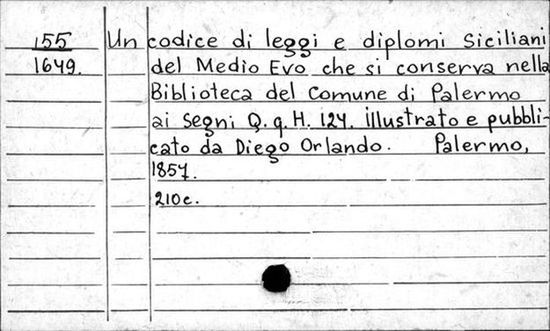 155
1649.
Un codice di leggi e diplomi Siciliani
del Medio Evo che si conserva nella
Biblioteca del Comune di Palermo
ai segni Q.q.H. 124. illustrato e pubbli-
cato da Diego Orlando. Palermo,
1857.
210c.